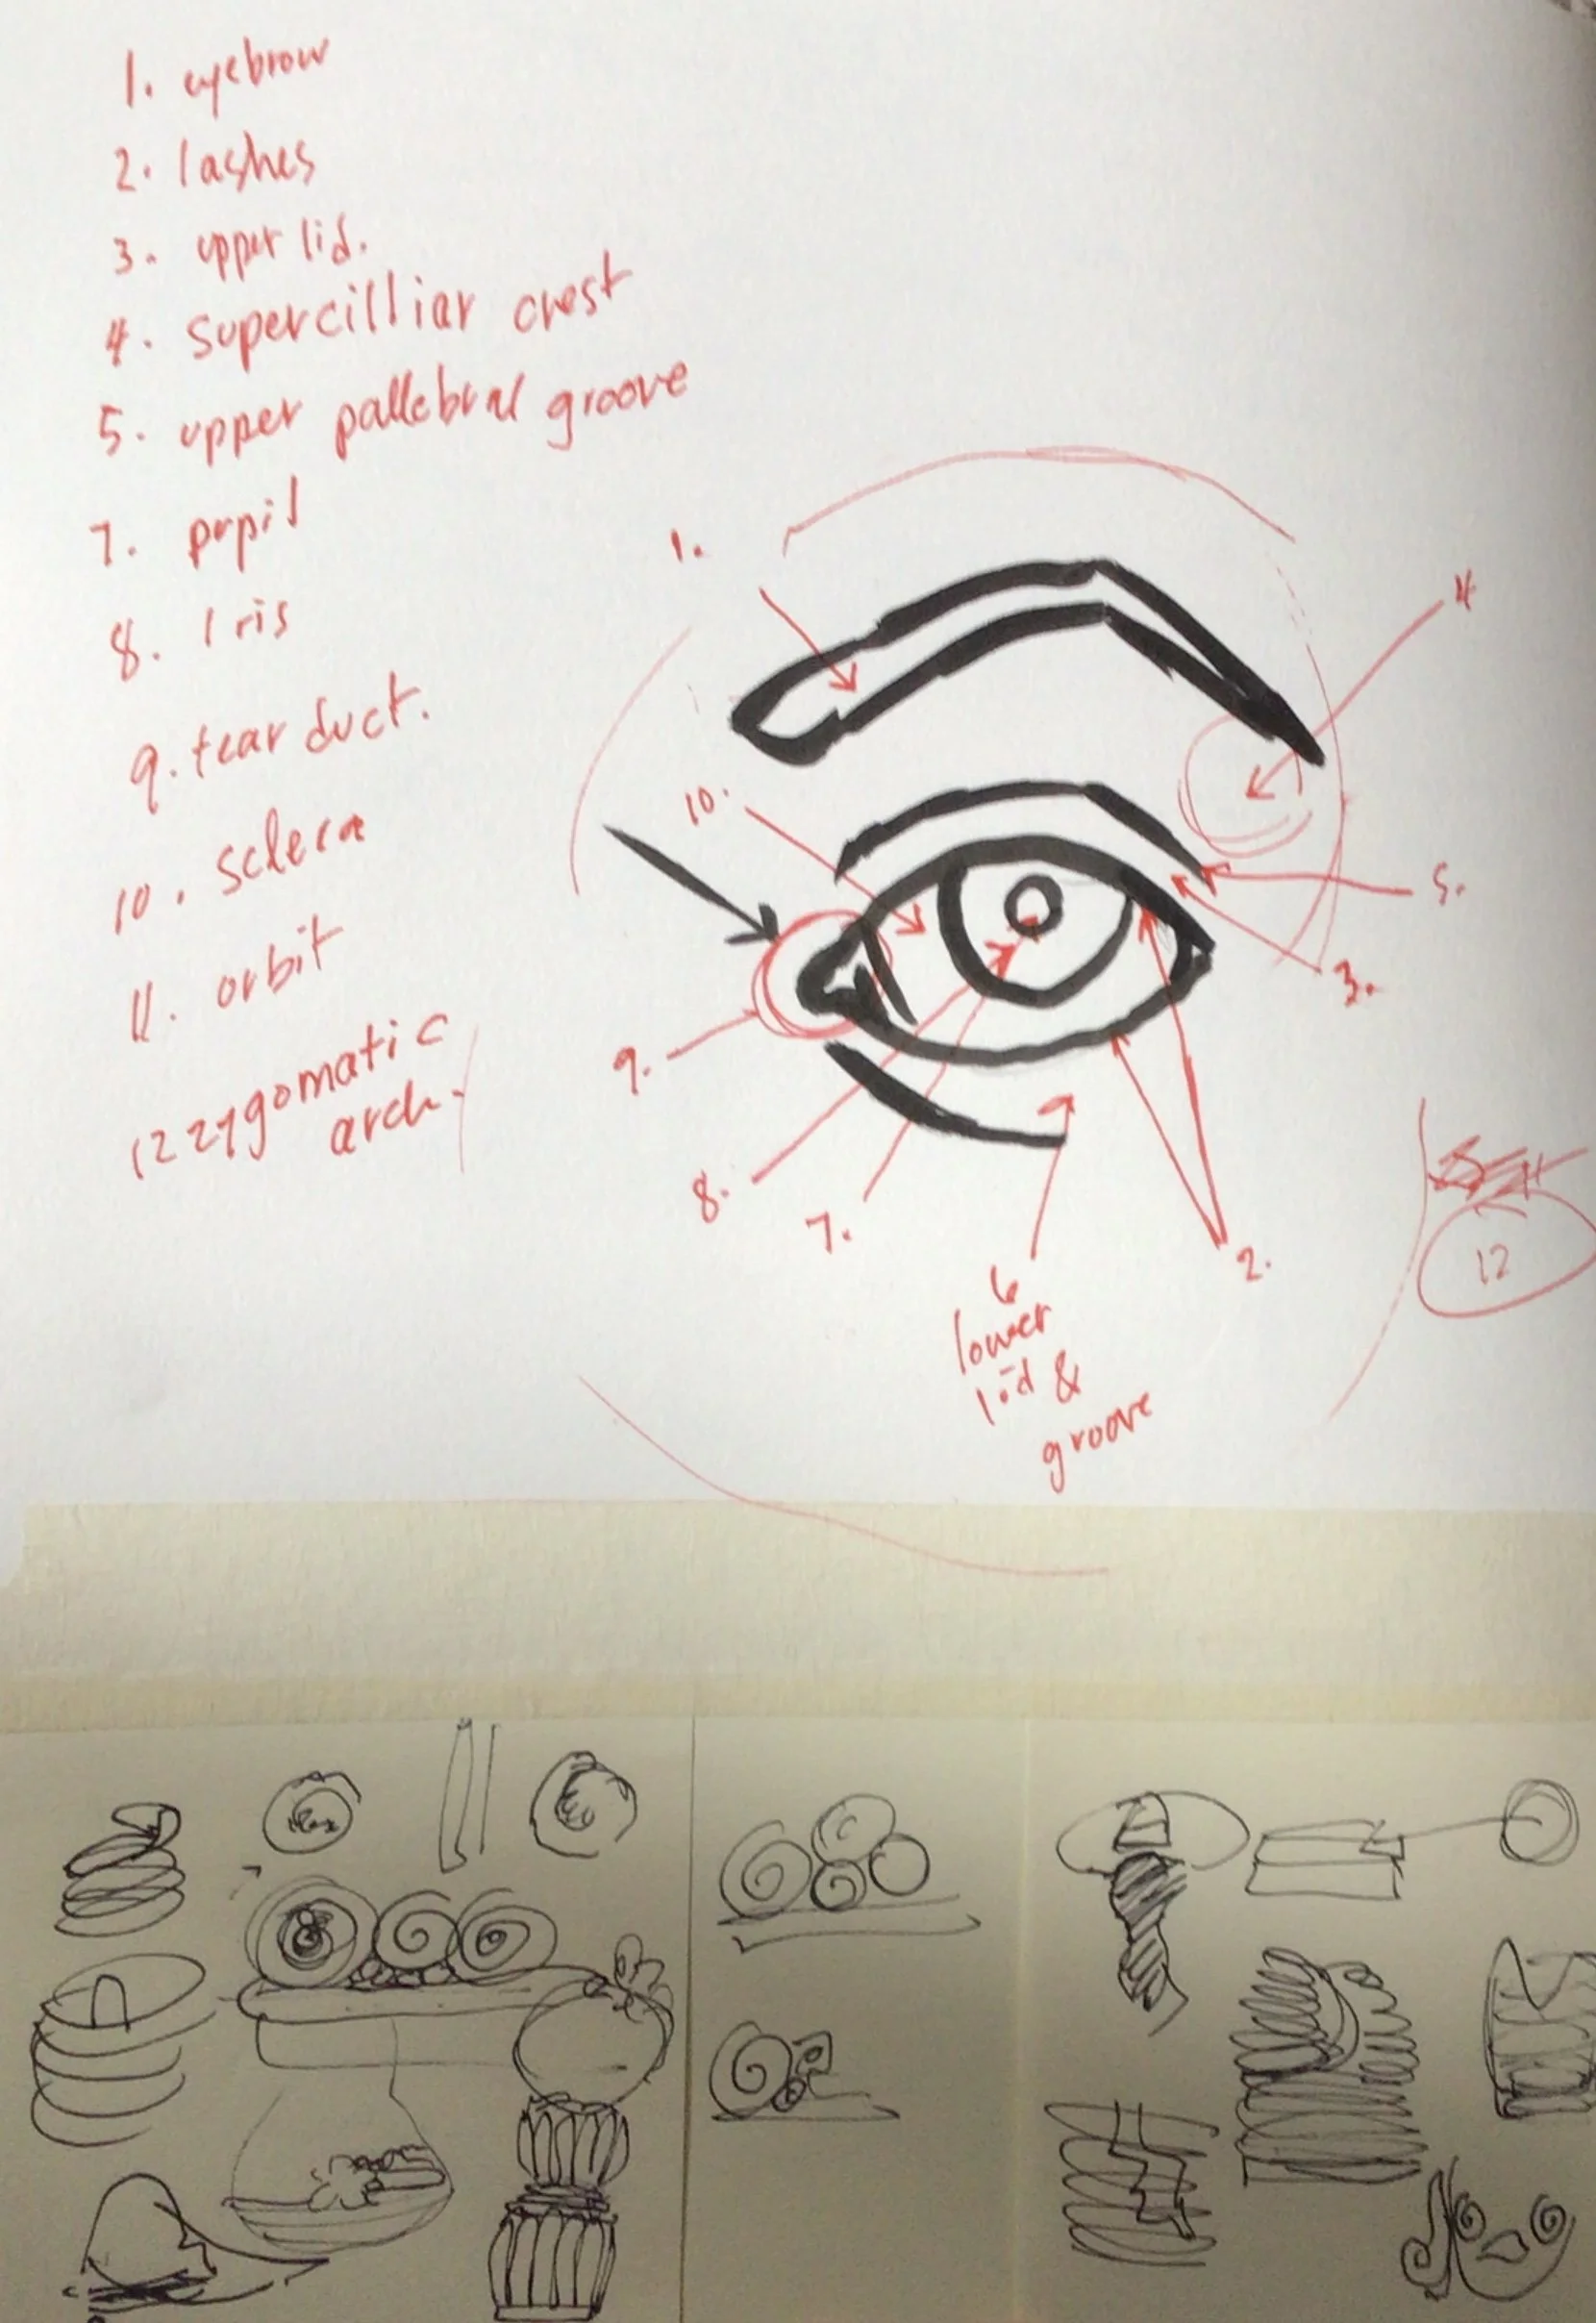 1. eyebrow
2. lashes
3. upper lid.
4. supercilliar crest
5. upper pallebral groove
7. pupil
8. Iris
9. tear duct.
10. sclera
11. orbit
12 zygomatic
arch.
1.
4
10.
5.
3.
9.
8.
7.
2.
12
6
lower
lid &
groove